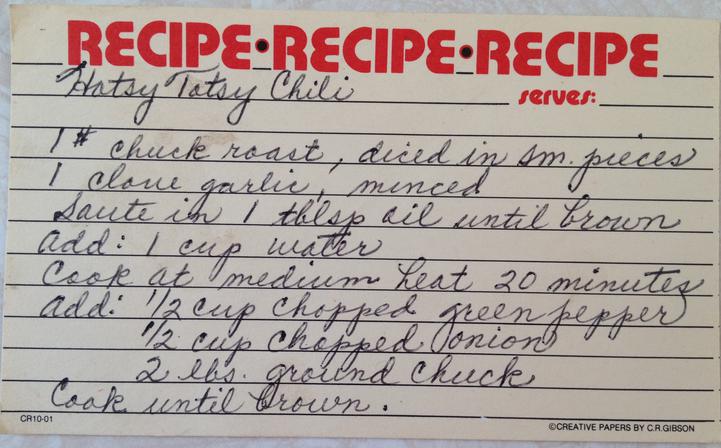 RECIPE•RECIPE•RECIPE
Hotsy Totsy Chili
serves:
1 # chuck roast, diced in sm. pieces
1 clove garlic, minced
Saute in 1 tblsp oil until brown
Add: 1 cup water
Cook at medium heat 20 minutes
Add: 1/2 cup chopped green pepper
1/2 cup chopped onion
2 lbs. ground chuck
Cook until brown.
CR10-01
©CREATIVE PAPERS BY C.R.GIBSON